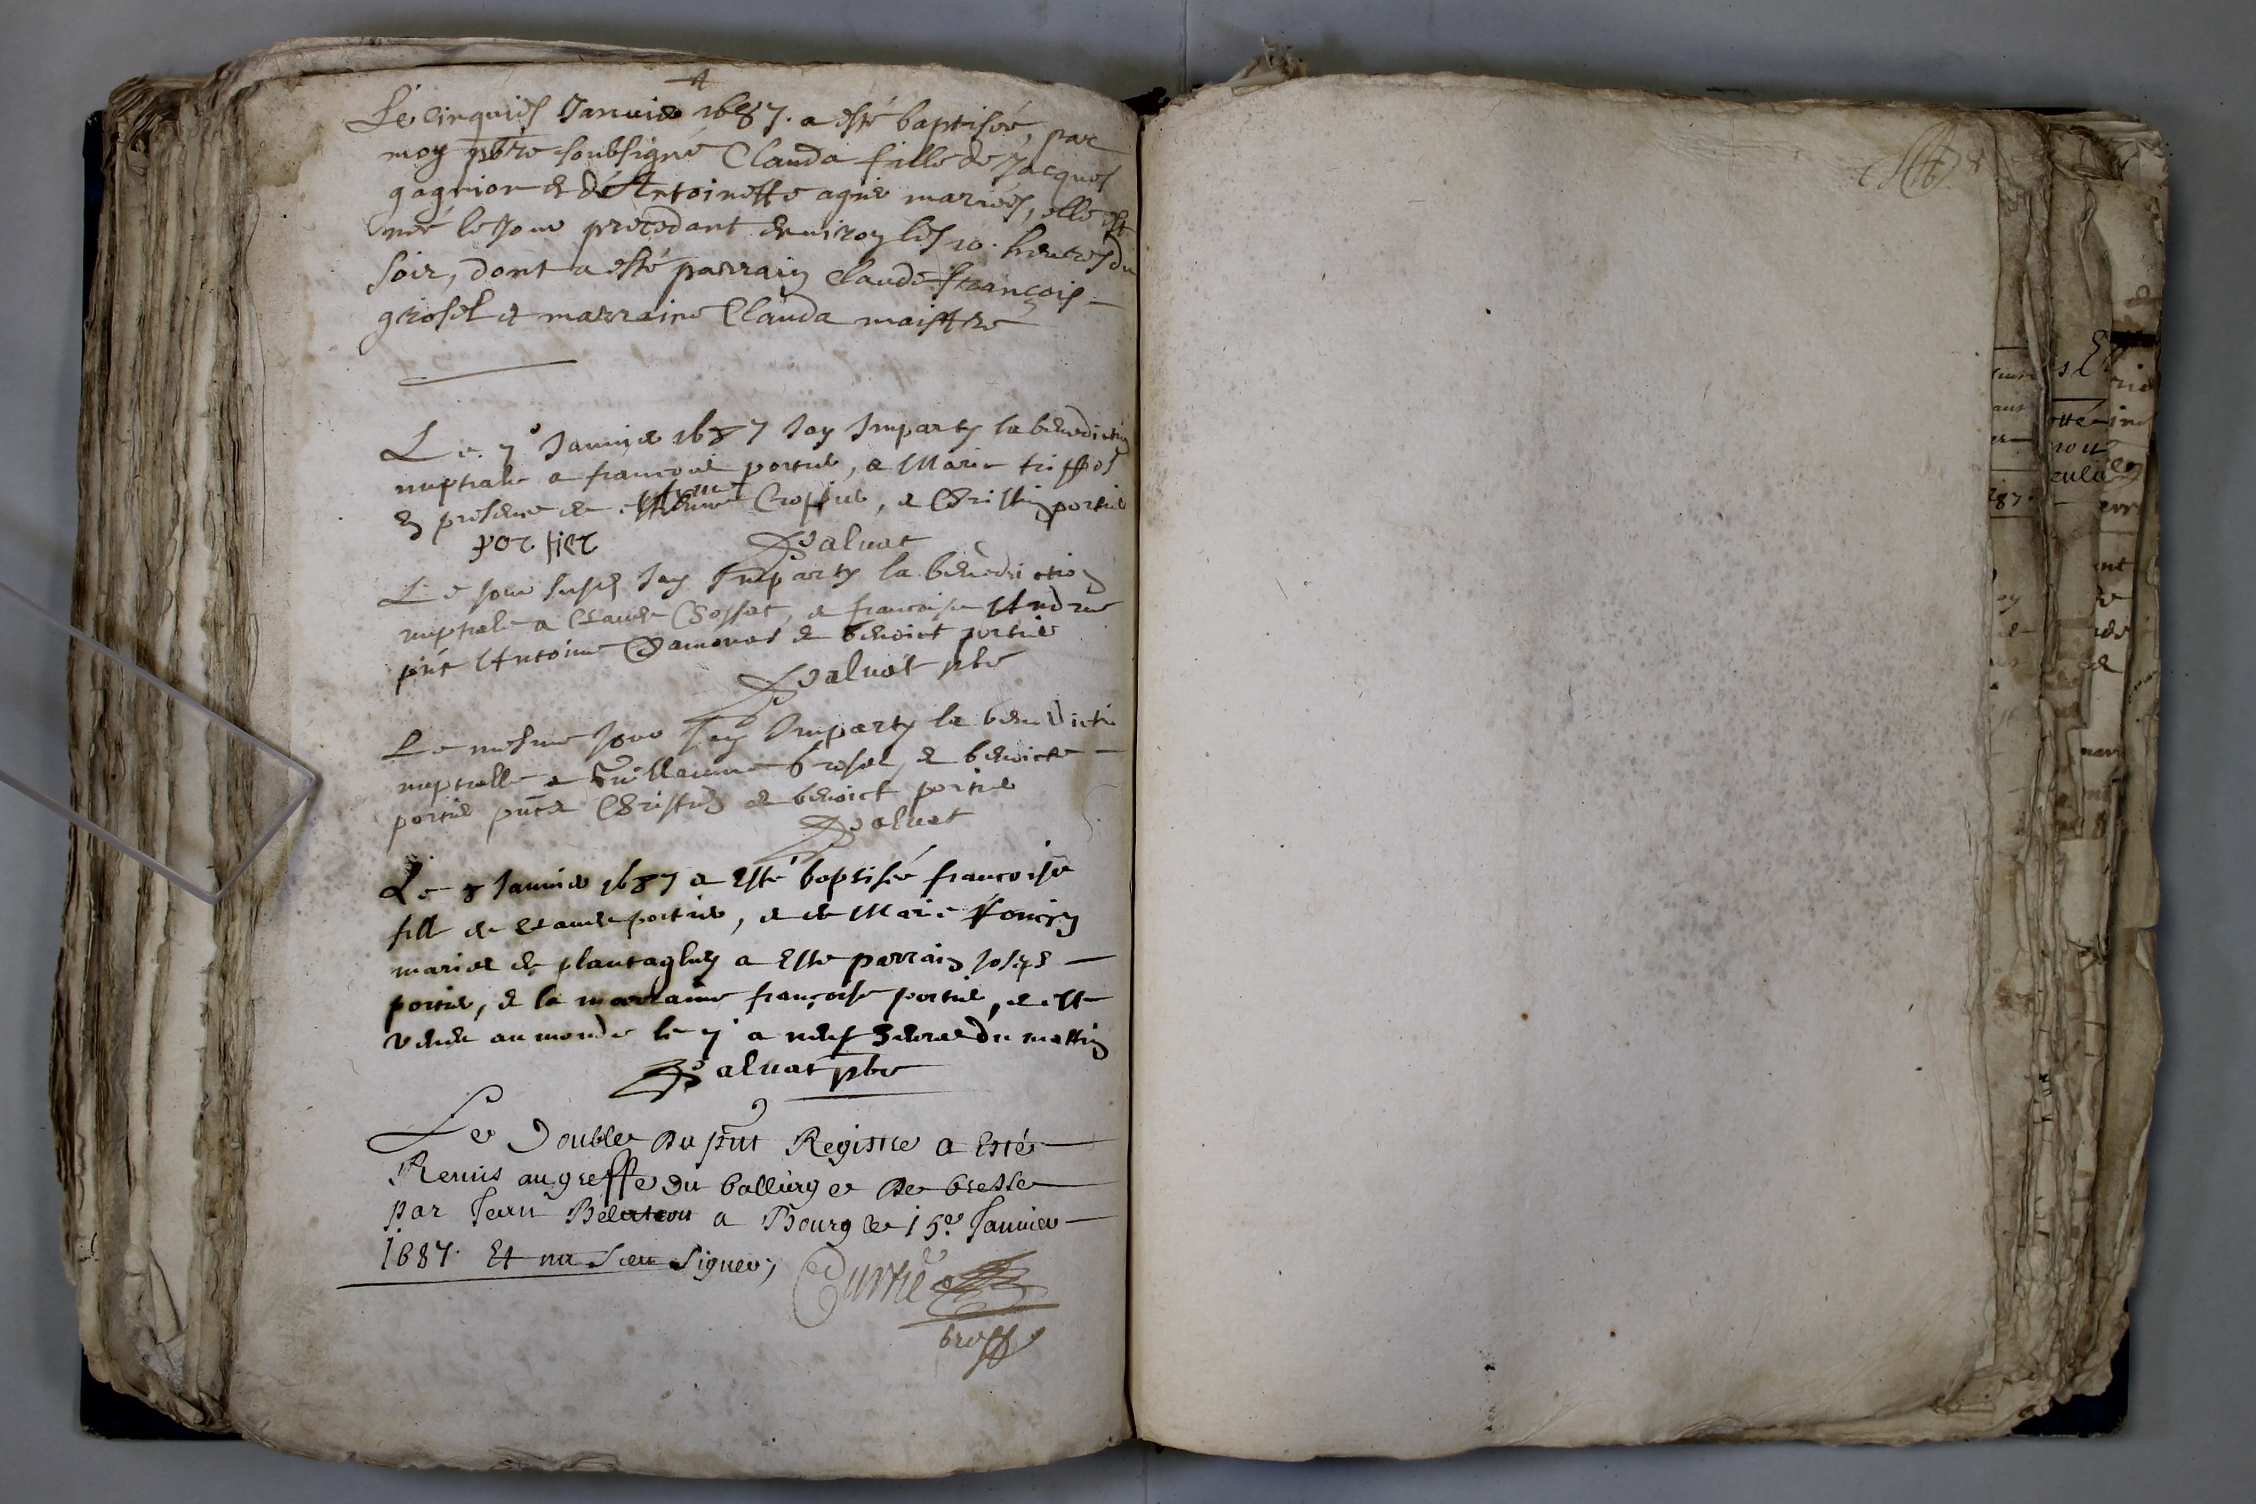 Le cinquies Janvier 1687. a esté baptisée, par
moy pbre soubsigné Clauda fille de Jacques
gagnion & de Antoinette agnie mariés, elle est
née le jour precedant environ les 10. heures du
soir, dont a esté parrain Claude François
grosel et marraine Clauda maistre
Le 7e Janvier 1687 Jay Imparty la benediction
nuptiale a francois portier, & Marie
En presence de estienne Cropier, & Christin portier
portier Salvat
Le jour susd Jay Imparty la benediction
nuptiale a Claude Chosset, & francoise Andrie
pnt Antoine Chamonas & benoict portier
Salvat pbre
Le mesme jour Jay Imparty la benedictio
nuptialle a Guillaume Grosel, & benoicte
portier pnts Christin & benoict portier
Salvat
Le 8 Janvier 1687 a Esté baptisée francoise
fille de Claude portier, & de Marie
mariés de plantaglay a Esté parrain Joseph
portier, & la marraine françoise portier, & este
venue au monde le 7 a neuf heures du mattin
Salvat pbre
Le Double Du pnt Registre a Esté
Remis au greffe du balliage De bresse
par Jean a Bourg le 15e Janvier
1687. Et na sceu signer,
greff